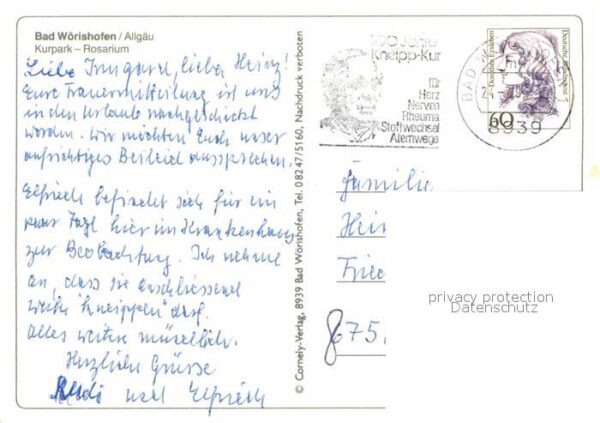 Bad Wörishofen / Allgäu
Kurpark – Rosarium
Liebe Irmgard, lieber Heinz!
Eure Trauermitteilung ist uns
in den Urlaub nachgeschickt
worden. Wir möchten Euch unser
aufrichtiges Beileid aussprechen.
Elfriede befindet sich für ein
paar Tage hier im Krankenhaus
zur Beobachtung. Ich nehme
an, dass sie anschliessend
weiter "kneippen" darf.
Alles weitere mündlich.
Herzliche Grüsse
Rudi und Elfriede
© Cornely-Verlag, 8939 Bad Wörishofen, Tel. 08247/5160, Nachdruck verboten
100 Jahre
Kneipp-Kur
für
Herz
Nerven
Rheuma
Stoffwechsel
Atemwege
BAD
8939
Deutsche Bundespost
60
Familie
Hein
Frie
675
privacy protection
Datenschutz